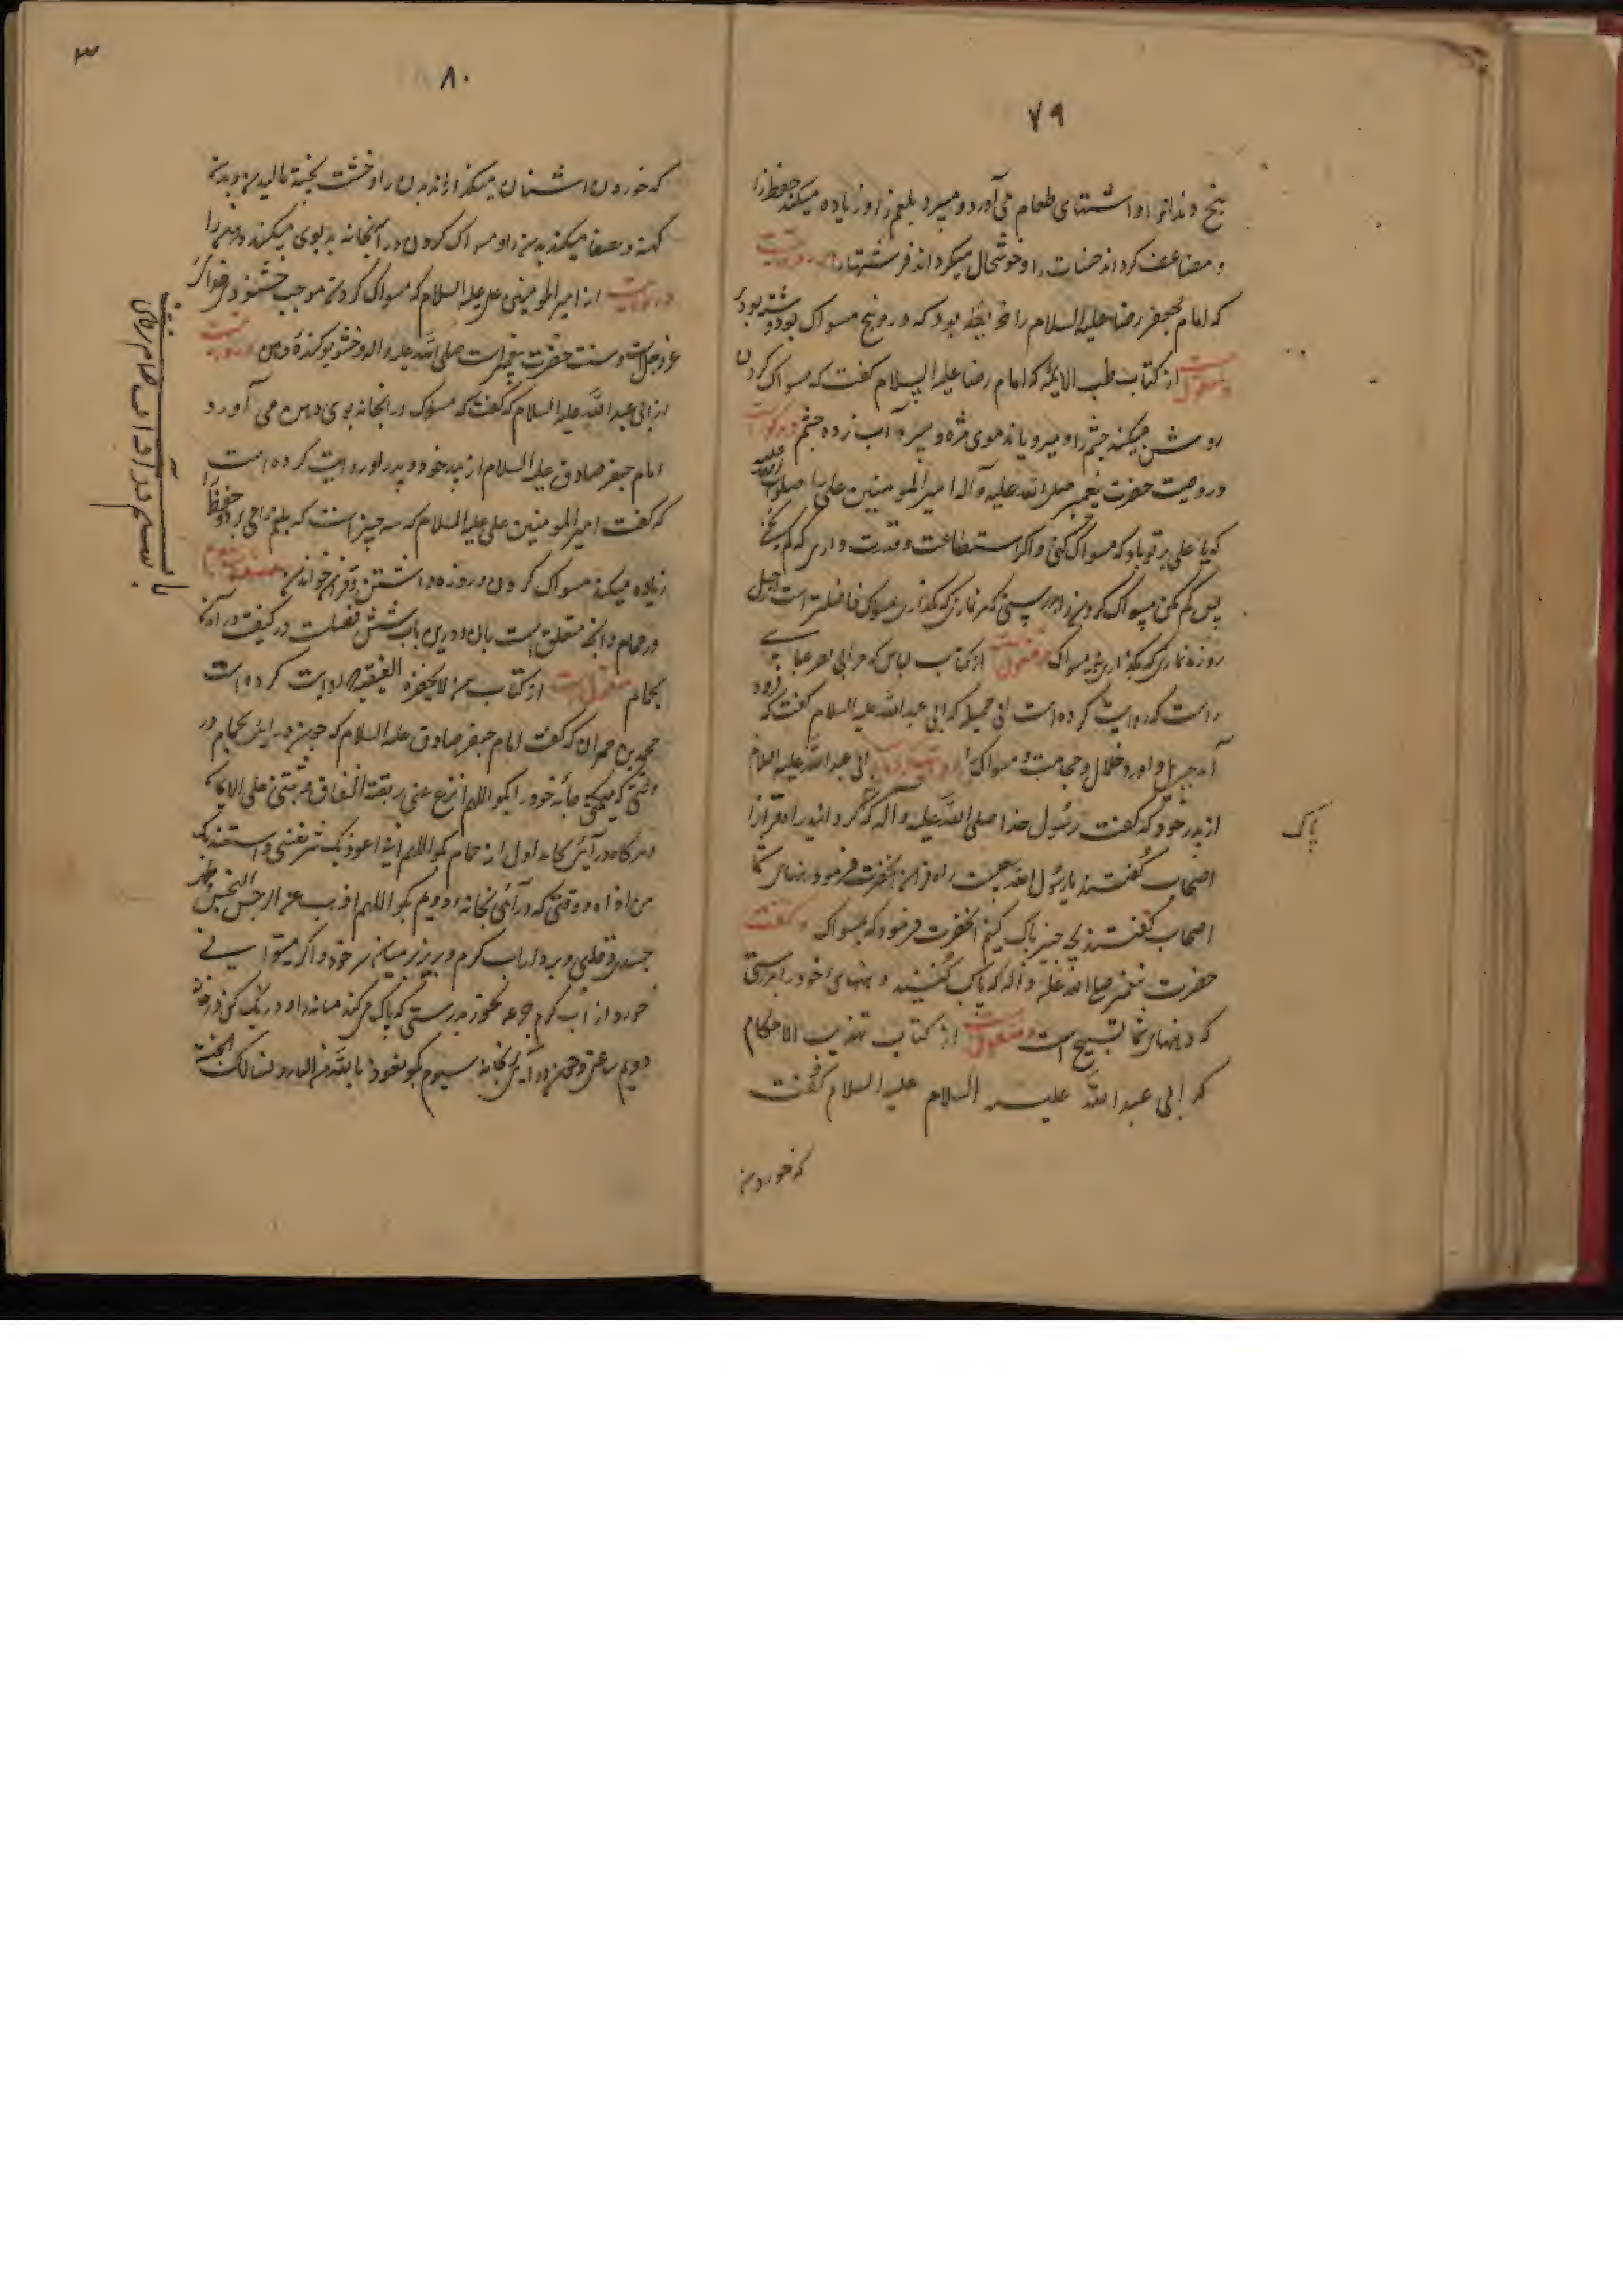 ۷۹
بیخ دندانرا و اشتهای طعام می‌آورد و میبرد بلغم را و زیاده میکند حفظ را
و مضاعف کرداند حسنات را و خوشحال میکرداند فرشتها را و مرویست
که امام بجعفر رضا علیه السلام را خریطه بود که درو پنج مسواک بود نوشته بود
و منقولست از کتاب طب الایمّه که امام رضا علیه السلام کفت که مسواک کردن
روشن میکند چشم را و میرویاند موی مژه و میبرد آب زده چشم و مرویست
در وصیت حضرت پیغمبر صلی الله علیه وآله امیر المومنین علی را صلوات الله علیه
که یا علی بر تو باد که مسواک کنی و اکر استطاعت و قدرت داری که کم نکنی
پس کم مکن مسواک کردن را بدرستی که هر نمازی که بکذاری بمسواک فاضلتر است از چهل
روزه نمازی که بکذاری بی مسواک منقولست از کتاب لباس که مر ابی نصر عیاشی
راست که روایت کرده است ابی جمیله که ابی عبد الله علیه السلام کفت که فرود
آمد جبرییل و اورد خلال و حجامت و مسواک و روایت است از ابی عبد الله علیه السلام
از پدر خود که کفت رسول خدا صلی الله علیه وآله که کردانید راه قرآنرا
پاک
اصحاب کفتند یا رسول الله چیست راه قرآن انحضرت فرمود دهنهای شما
اصحاب کفتند بچه چیز پاک کنیم انحضرت فرمود که بمسواک و کفت
حضرت پیغمبر صلی الله علیه واله که پاک کنید دهنهای خود را بدرستی
که دهنهای شما تسبیح است و منقولست از کتاب تهذیب الاحکام
که ابی عبد الله علیه السلام علیه السلام کفت
که خوردن
۸۰
۳
که خوردن اشنان میکدازاند بدن را و خشت پخته مالیدن بدن
کهنه و صفا میکند بدن را و مسواک کردن در آبخانه بد بوی میکند دهن را
و مرویست از امیر المومنین علی علیه السلام که مسواک کردن موجب خشنودی خداست
عز و جل است و سنت حضرت پیغمبر است صلی الله علیه واله و خشبو کنندهٔ دهن و مرویست
از ابی عبد الله علیه السلام که کفت که مسواک در ابخانه بوی دهن می آورد
امام جعفر صادق علیه السلام از پدر خود و پدر او روایت کرده است
که کفت امیر المومنین علی علیه السلام که سه چیز است که بلغم را می برد و حفظ را
زیاده میکند مسواک کردن و روزه داشتن و قرآن خواندن باب سیوم
در حمام و انچه متعلق است بان و درین باب شش فصلست در کیفیت در آمدن
بحمام منقولست از کتاب من لا یحضره الفقیه روایت کرده است
محمد بن حمران که کفت امام جعفر صادق علیه السلام که چون در ایی بحمام در
وقتی که میکنی جامهٔ خود را بکو اللهم انزع عنی ربقة النفاق و ثبتنی علی الایمان
و هرکاه در آیی بخانه اول از حمام بکو اللهم انی اعوذ بک من شر نفسی و استعیذ بک
من اذاه و وقتی که در آیی بخانه دویم بکو اللهم اذهب عنی الرجس النجس و طهر
جسدی و قلبی و بردار اب کرم و بریز بر میان سر خود و اکر میتوانی
خورد از آب کرم جرعه بخور بدرستی که پاک می کند مثانه را و درنک کن در خانه
دویم ساعتی و چون در آیی بخانه سیوم بکو نعوذ بالله من النار و نساله الجنة
باب سیوم در آداب حمام رفتن